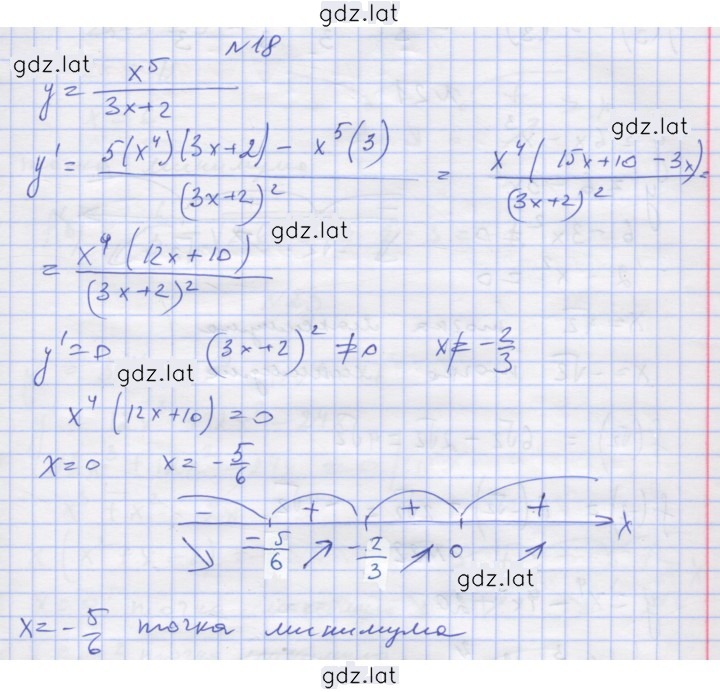 gdz.lat
№18
gdz.lat
y = x⁵/(3x+2)
gdz.lat
y' = (5(x⁴)(3x+2) - x⁵(3))/(3x+2)² = x⁴(15x+10-3x)/(3x+2)² =
gdz.lat
= x⁴(12x+10)/(3x+2)²
y'=0 (3x+2)² ≠ 0 x ≠ -2/3
gdz.lat
x⁴(12x+10) = 0
x=0 x = -5/6
- + + + x
-5/6 -2/3 0
gdz.lat
x = -5/6 точка минимума
gdz.lat